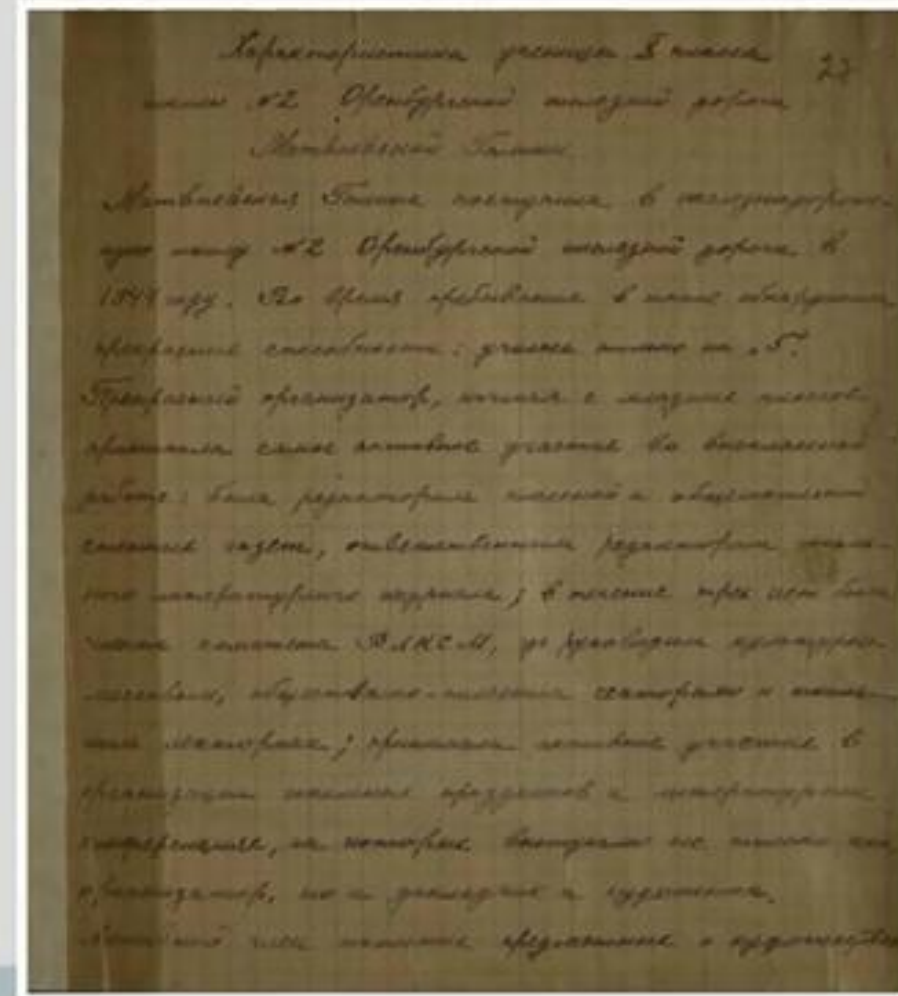 Характеристика ученицы X класса
23
школы №2 Оренбургской железной дороги
Матвиевской Галины.
Матвиевская Галина поступила в железнодорож-
ную школу №2 Оренбургской железной дороги в
году. Во время пребывания в школе обнаружила
прекрасные способности: училась только на „5".
Прекрасный организатор, начиная с младших классов,
принимала самое активное участие во внеклассной
работе: была редактором классной и общешкольной
стенных газет, ответственным редактором школь-
ного литературного журнала; в течение трех лет была
членом комитета ВЛКСМ, где руководила
общественно- сектором и
; принимала активное участие в
организации школьных праздников и литературных
конференциях, на которых выступала не только как
организатор, но и докладчик и художник.